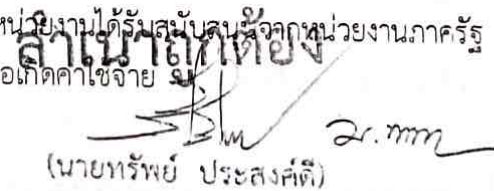 หน่วยงานได้รับสนับสนุนจากหน่วยงานภาครัฐ
สำเนาถูกต้อง
อเกิดค่าใช้จ่าย
(นายทรัพย์ ประสงค์ดี)